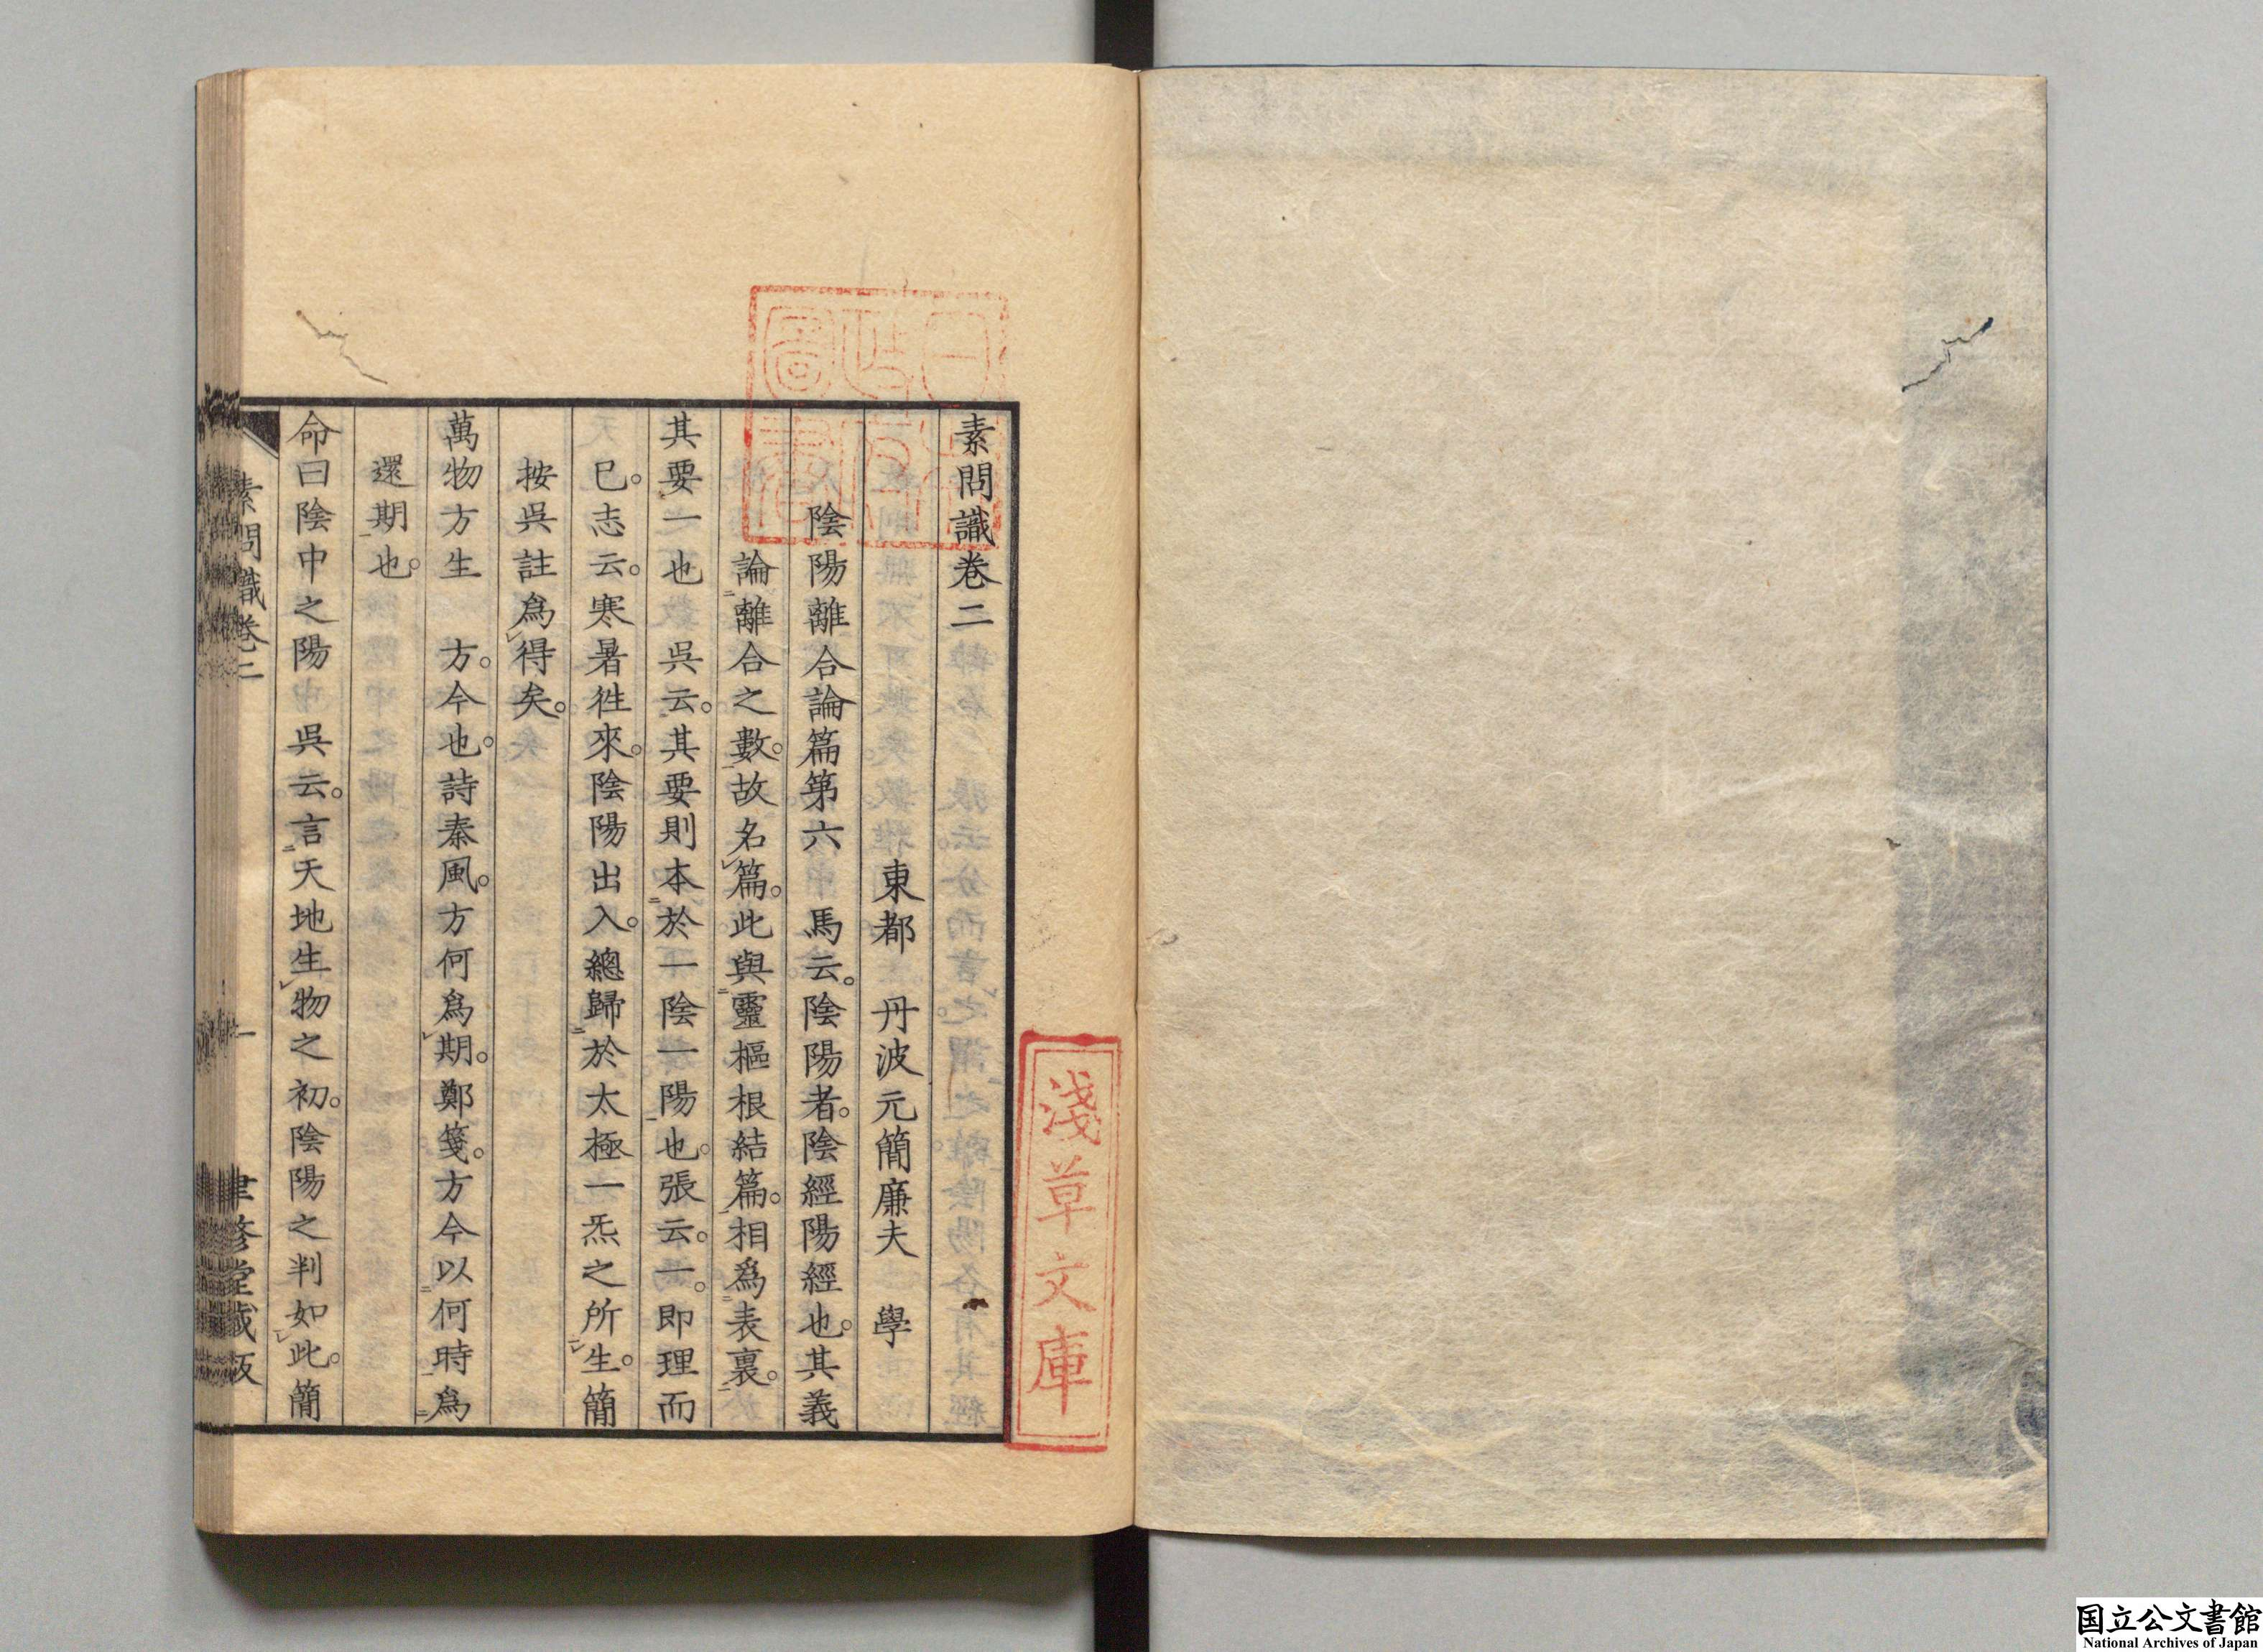 素問識卷二
東都 丹波元簡廉夫 學
陰陽離合論篇第六 馬云。陰陽者。陰經陽經也。其義
論離合之數。故名篇。此與靈樞根結篇。相爲表裏。
其要一也 吳云。其要則本於一陰一陽也。張云。一。即理而
已。志云。寒暑徃來。陰陽出入。總歸於太極一炁之所生。簡
按吳註爲得矣。
萬物方生 方。今也。詩秦風。方何爲期。鄭箋。方今以何時爲
還期也。
命曰陰中之陽 吳云。言天地生物之初。陰陽之判如此。簡
素問識卷二
一
聿修堂藏板
淺草文庫
国立公文書館
National Archives of Japan